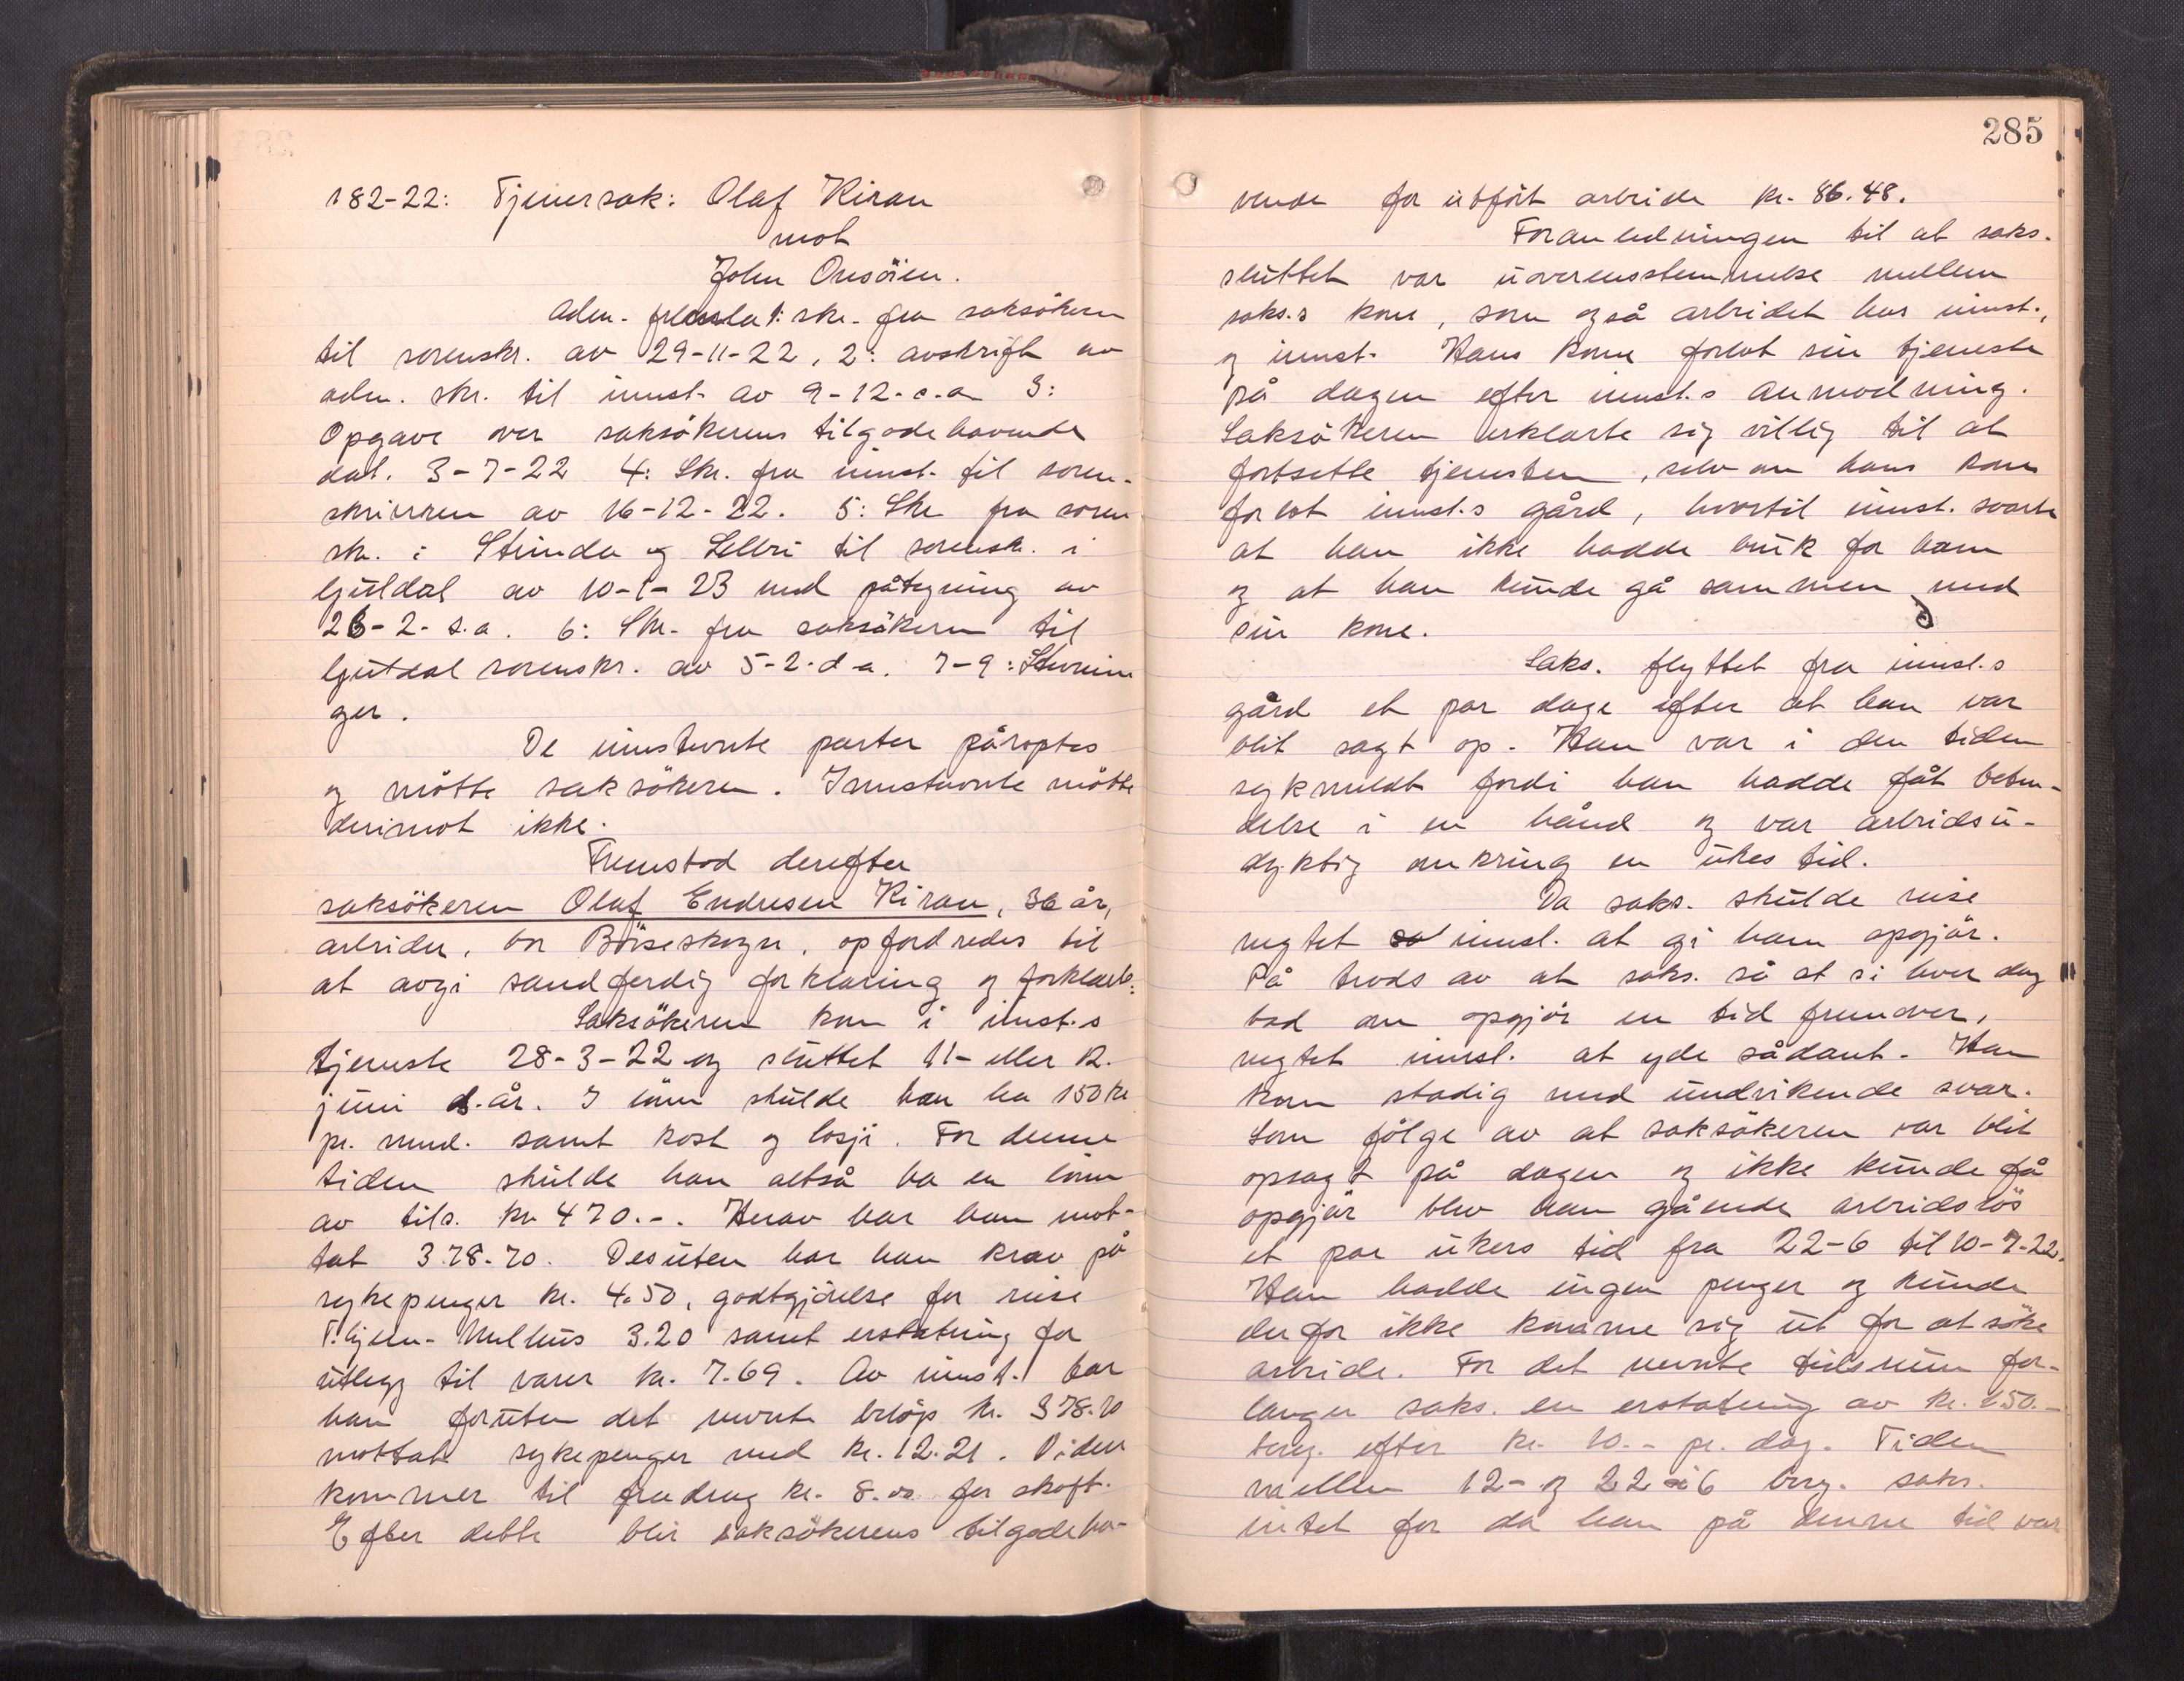 182-22: Tjenersak: Olaf Kiran
mot
John Onsöien.
Adm. fremla 1: skr. fra saksökeren
til sorenskr. av 29-11-22, 2: avskrift av
adm. skr. til innst. av 9-12. s.a 3:
Opgave over saksökerens tilgodehavende
dat. 3-7-22 4: Skr. fra innst. til soren-
skriveren av 16-12-22. 5: Skr fra soren
skr. i Strinda og Selbu til sorenskr. i
Guldal av 10-1-23 med påtegning av
26-2- s.a. 6: Skr. fra saksökeren til
Guldal sorenskr. av 5-2-d-a. 7-9: Stevnin
ger.
De innstevnte parter påroptes
og mötte saksökeren. Innstevnte mötte
derimot ikke.
Fremstod derefter
saksökeren Olaf Endresen Kiran, 36 år,
arbeider, bor Börseskogn, opfordredes til
at avgi sandferdig forklaring og forklarte:
Saksökeren kom i innst.s
tjeneste 28-3-22 og sluttet 11- eller 12.
juni s.år. I lönn skulde han ha 150 kr
pr. mnd. samt kost og losji. For denne
tiden skulde han altså ha en lönn
av tils. kr 470.-. Herav har han mot-
tat 378.70. Desuten har han krav på
sykepenger kr. 4.50, godtgjörelse for reise
T.hjem-Melhus 3.20 samt erstatning for
utlegg til varer kr. 7.69. Av innst. har
han foruten det nevnte belöp kr. 378.70
mottat sykepenger med kr. 12.21. Viden
kommer til fradrag kr. 8.00 for skoft.
Efter dette blir saksökerens tilgodeha-
285
vende for utfört arbeide kr. 86.48.
Foranledningen til at saks.
sluttet var uoverensstemmelse mellem
saks.s kone, som også arbeidet hos innst.,
og innst. Hans kone forlot sin tjeneste
på dagen efter innst.s anmodning.
Saksökeren erklærte sig villig til at
fortsette tjenesten, selv om hans kone
forlot innst.s gård, hvortil innst. svarte
at han ikke hadde bruk for ham
og at han kunde gå sammen med
sin kone.
Saks. flyttet fra innst.s
gård et par dage efter at han var
blit sagt op. Han var i den tiden
sykmeldt fordi han hadde fåt beten-
delse i en hånd og var arbeidsu-
dyktig omkring en ukes tid.
Da saks. skulde reise
negtet innst. at gi ham opgjör.
På trods av at saks. så at si hver dag
bad om opgjör en tid fremover,
negtet innst. at yde sådant. Han
kom stadig med undvikende svar.
Som fölge av at saksökeren var blit
opsagt på dagen og ikke kunde få
opgjör blev han gående arbeidslös
et par ukers tid fra 22-6 til 10-7-22.
Han hadde ingen penger og kunde
derfor ikke komme sig ut for at söke
arbeide. For det nevnte tidsrum for-
langer saks. en erstatning av kr. 150.-
bereg. efter kr. 10.- pr. dag. Tiden
mellem 12- og 22-6 bereg. saks.
intet for da han på denne tid var